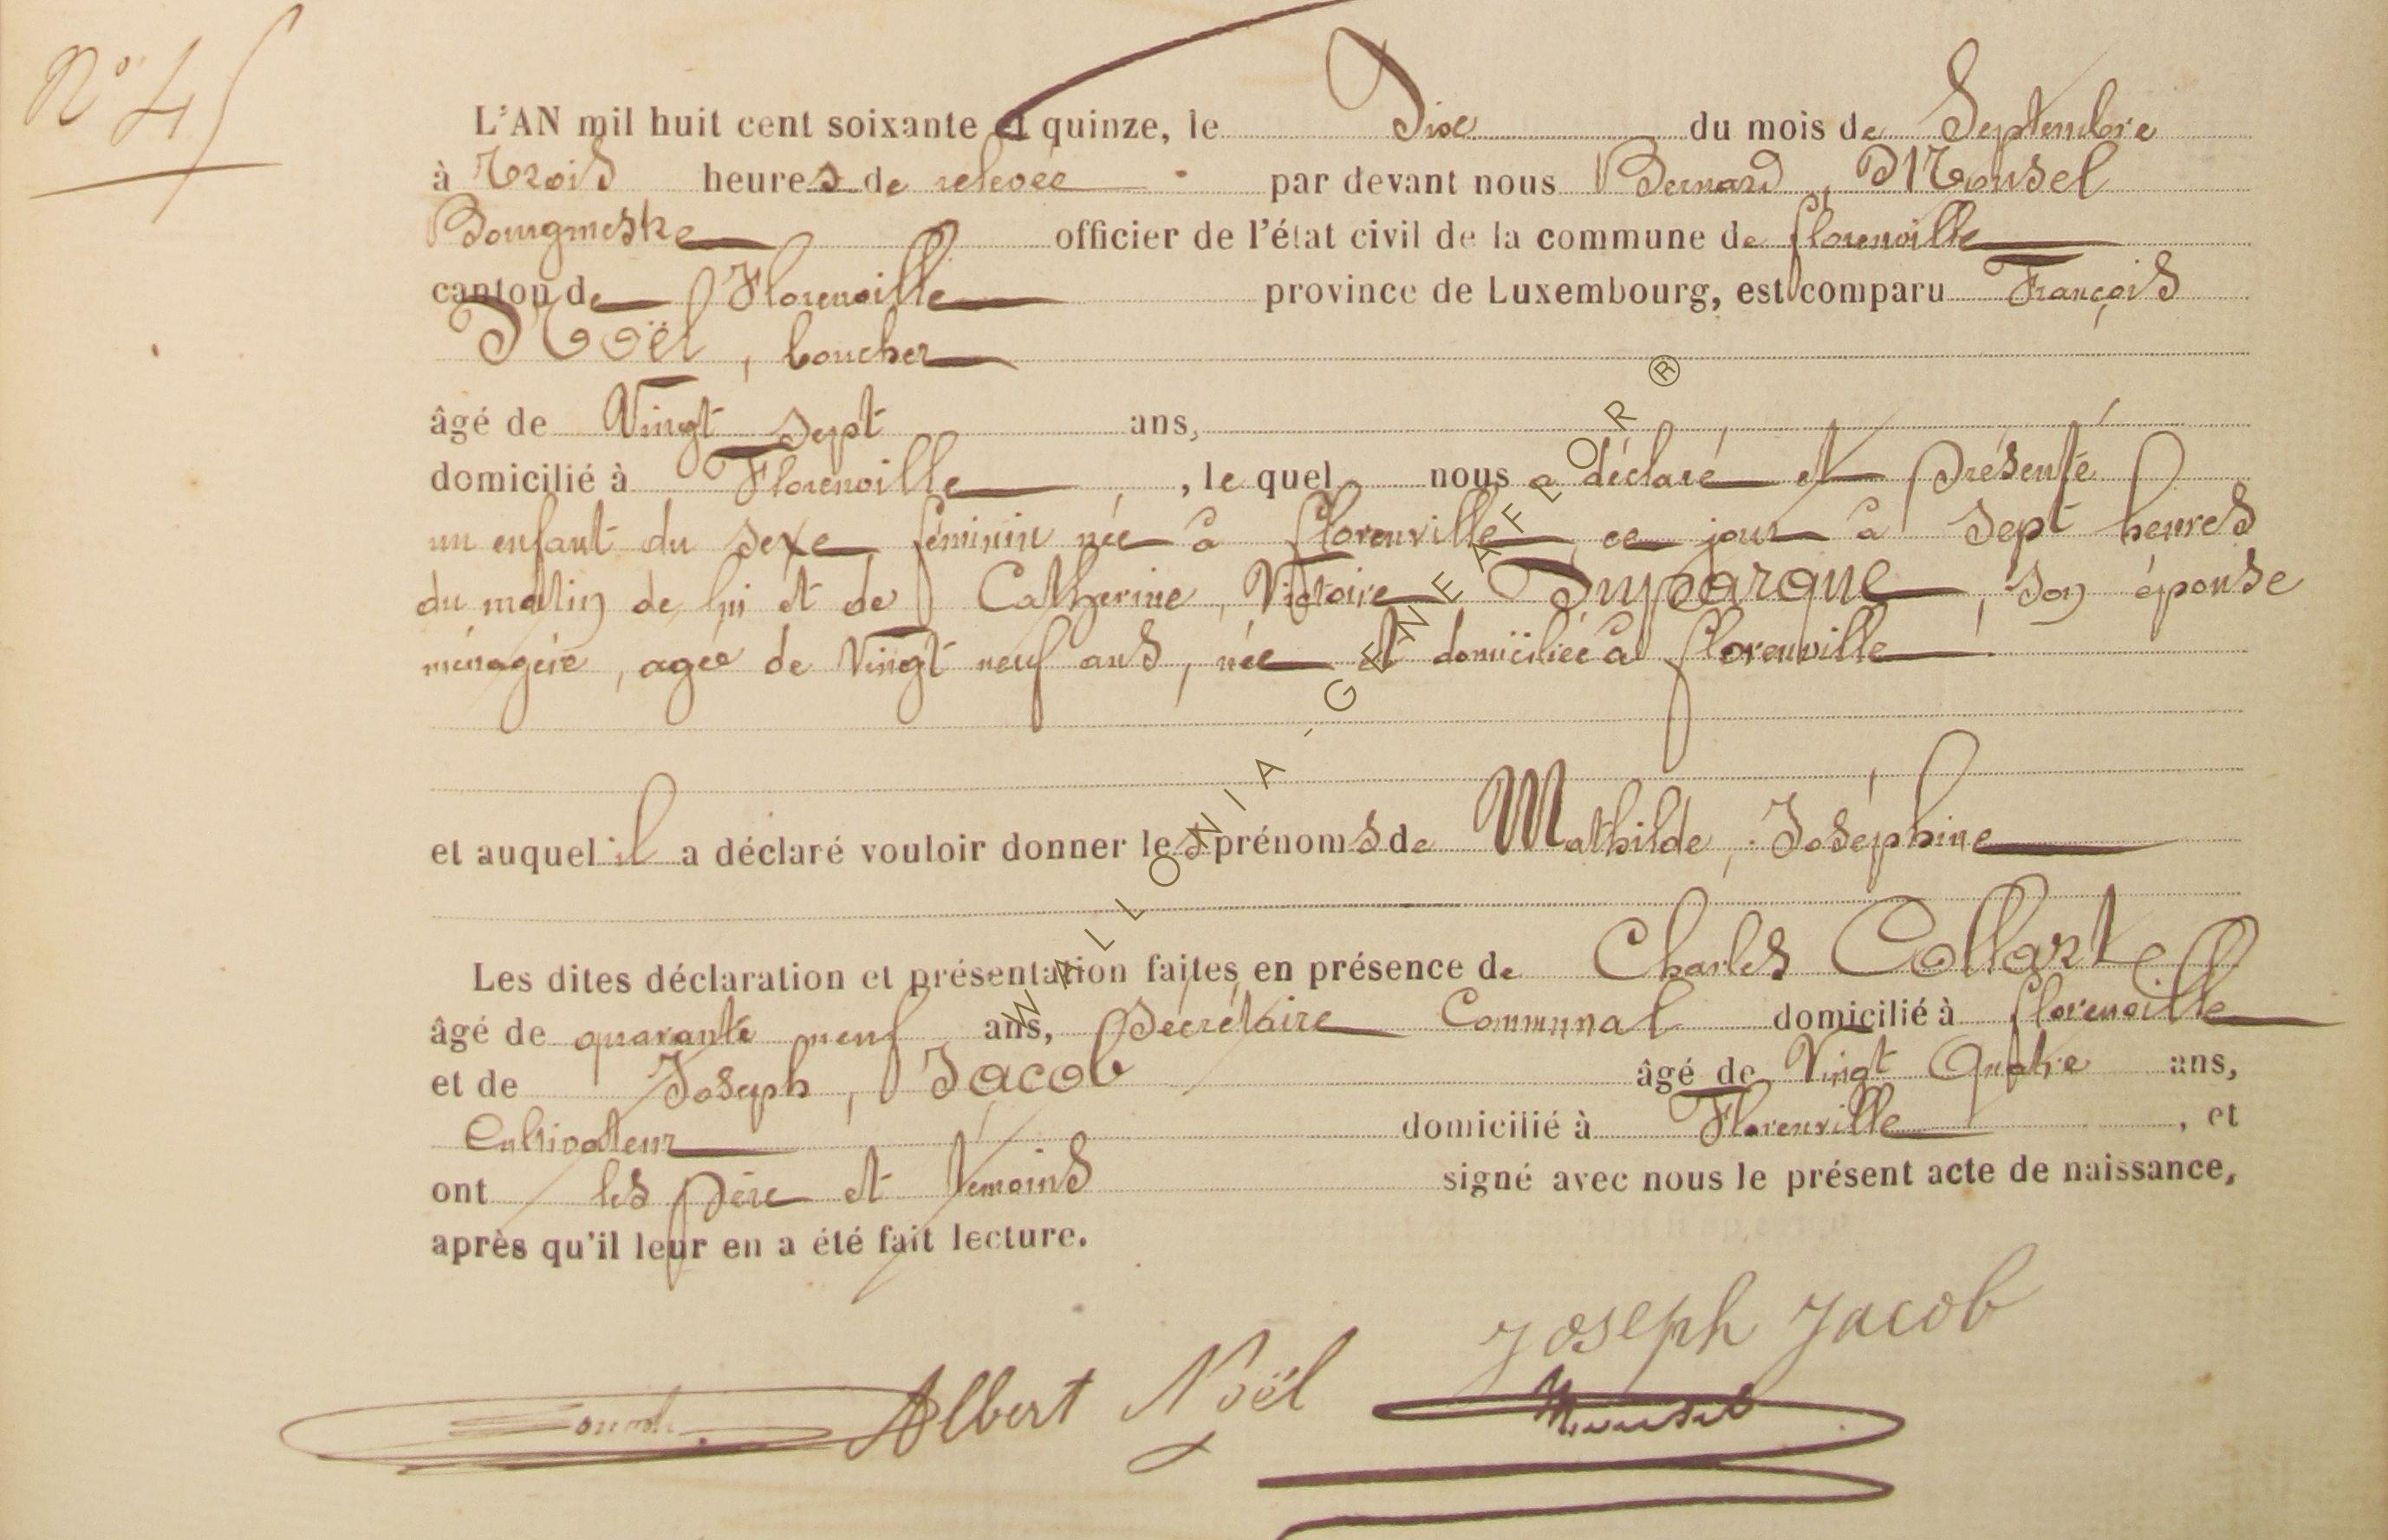 N° 45
L'AN mil huit cent soixante et quinze, le Dix du mois de Septembre
à Trois heures de relevée par devant nous Bernard, Mousel
Bourgmestre officier de l'état civil de la commune de florenville
canton de Florenville province de Luxembourg, est comparu François
Noël, boucher
âgé de Vingt sept ans,
domicilié à Florenville, le quel nous a déclaré et présenté
un enfant du sexe féminin née à florenville, ce jour à sept heures
du matin de lui et de Catherine, Victoire Duparque, son épouse
ménagère, agée de Vingt neuf ans, née et domiciliée à florenville
et auquel il a déclaré vouloir donner les prénoms de Mathilde, Joséphine
Les dites déclaration et présentation faites en présence de Charles Collart
âgé de quarante neuf ans, Secrétaire Communal domicilié à florenville
et de Joseph, Jacob âgé de Vingt Quatre ans,
Cultivateur domicilié à Florenville, et
ont les père et témoins signé avec nous le présent acte de naissance,
après qu'il leur en a été fait lecture.
Joseph Jacob
Albert Noël Mousel
WALLONIA - GENEAFLOR ®